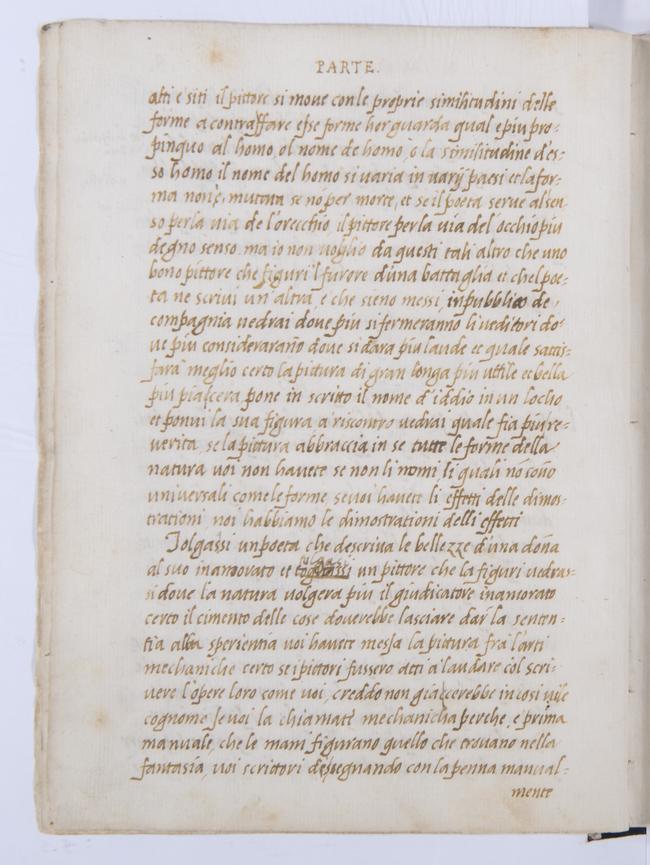 PARTE.
atti e siti il pittore si move con le proprie similitudini delle
forme a contraffare esse forme her guarda qual e piu pro-
pinquo al homo, ol nome de homo, o la similitudine d'es-
so homo il nome del homo si varia in varij paesi et la for-
ma non è mutata se nõ per morte, et se il poeta serue al sen-
so per la via de l'orecchio il pittore per la via del'occhio piu
degno senso. ma io non voglio da questi tali altro che uno
bono pittore che figuri 'l furore d'una battaglia et chel poe-
ta ne scriui un'altra, e che sieno messi, in pubblico de
compagnia uedrai doue piu si fermeranno li ueditori do-
ue piu considerarano doue si dara piu laude et quale satis-
fara meglio certo la pictura di gran longa piu utile et bella
piu piacera pone in scritto il nome d'iddio in un locho
et ponui la sua figura a riscontro uedrai quale fia piu re-
uerita, se la pittura abbraccia in se tutte le forme della
natura uoi non hauete se non li nomi li quali nõ sono
universali come le forme, se uoi hauete li effetti delle dimos-
trationi, noi habbiamo le dimostrationi delli effetti
Tolgassi un poeta che descriua le bellezze d'una dona
al suo inamorato et tolgassi un pittore che la figuri uedras-
si doue la natura uolgera piu il giudicatore inamorato
certo il cimento delle cose douerebbe lasciare dar la senten-
tia alla sperientia uoi hauete messa la pictura fra l'arti
mechaniche certo se i pittori fussero atti a laudare col scri-
uere l'opere loro come uoi, creddo non giaccerebbe in cosi uile
cognome se uoi la chiamate mechanicha perche, e prima
manuale, che le mani figurano quello che trouano nella
fantasia, uoi scrittori dessegnando con la penna manual-
mente